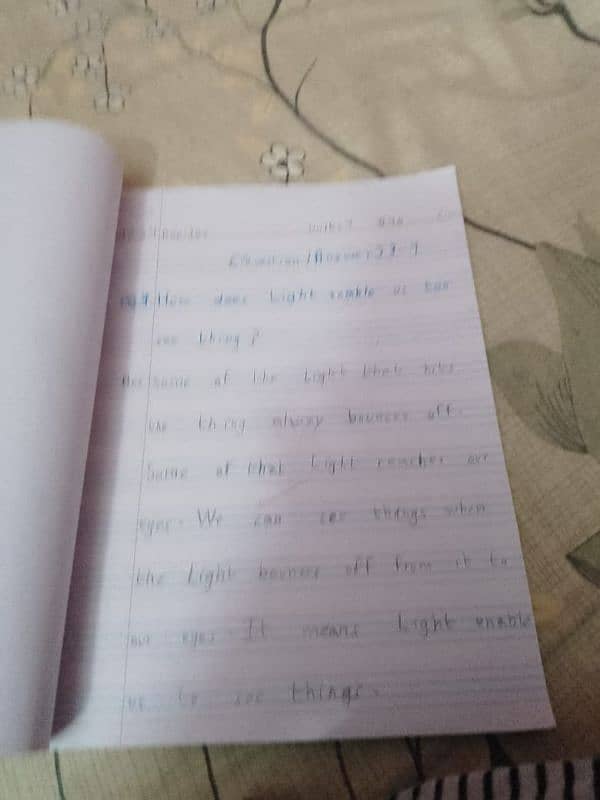 Question / Answer
How does light enable us to
see thing?
Ans Some of the Light that hits
the thing always bounces off.
Some of that Light reaches our
eyes. We can see things when
the Light bounces off from it to
our eyes. It means Light enable
us to see things.